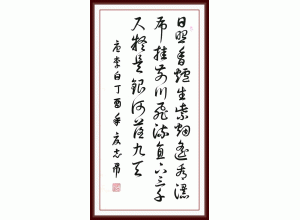 日照香爐生紫烟遙看瀑
布挂前川飛流直下三千
尺疑是銀河落九天
唐李白丁酉年友志昂